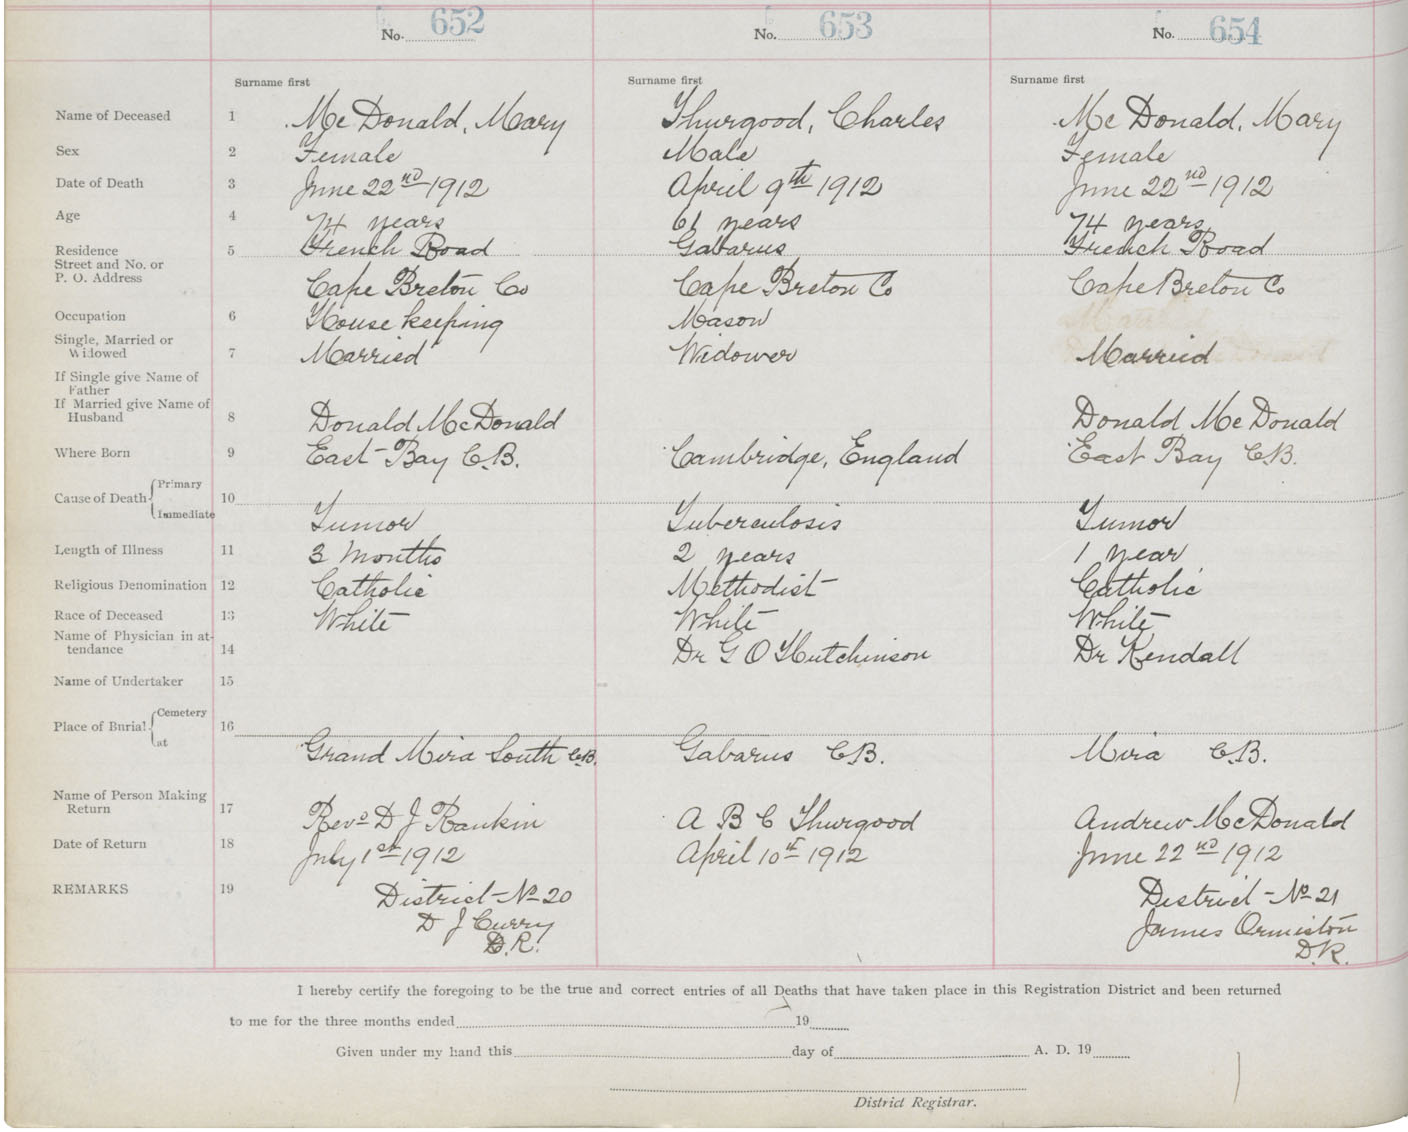 No. 652 No. 653 No. 654
Surname first Surname first Surname first
Name of Deceased 1 McDonald, Mary Thurgood, Charles McDonald, Mary
Sex 2 Female Male Female
Date of Death 3 June 22nd 1912 April 9th 1912 June 22nd 1912
Age 4 74 years 61 years 74 years
Residence 5 French Road Gabarus French Road
Street and No. or
P. O. Address Cape Breton Co Cape Breton Co Cape Breton Co
Occupation 6 House keeping Mason
Single, Married or
Widowed 7 Married Widower Married
If Single give Name of
Father
If Married give Name of
Husband 8 Donald McDonald Donald McDonald
Where Born 9 East Bay C.B. Cambridge, England East Bay C.B.
Primary
Cause of Death 10
Immediate Tumor Tuberculosis Tumor
Length of Illness 11 3 Months 2 years 1 year
Religious Denomination 12 Catholic Methodist Catholic
Race of Deceased 13 White White White
Name of Physician in at-
tendance 14 Dr G O Hutchinson Dr Kendall
Name of Undertaker 15
Cemetery
Place of Burial 16
at Grand Mira South C.B. Gabarus C.B. Mira C.B.
Name of Person Making
Return 17 Revd D J Rankin A B C Thurgood Andrew McDonald
Date of Return 18 July 1st 1912 April 10th 1912 June 22nd 1912
REMARKS 19 District No 20 District No 21
D J Curry James Ormiston
D.R. D.R.
I hereby certify the foregoing to be the true and correct entries of all Deaths that have taken place in this Registration District and been returned
to me for the three months ended 19
Given under my hand this day of A. D. 19
District Registrar.